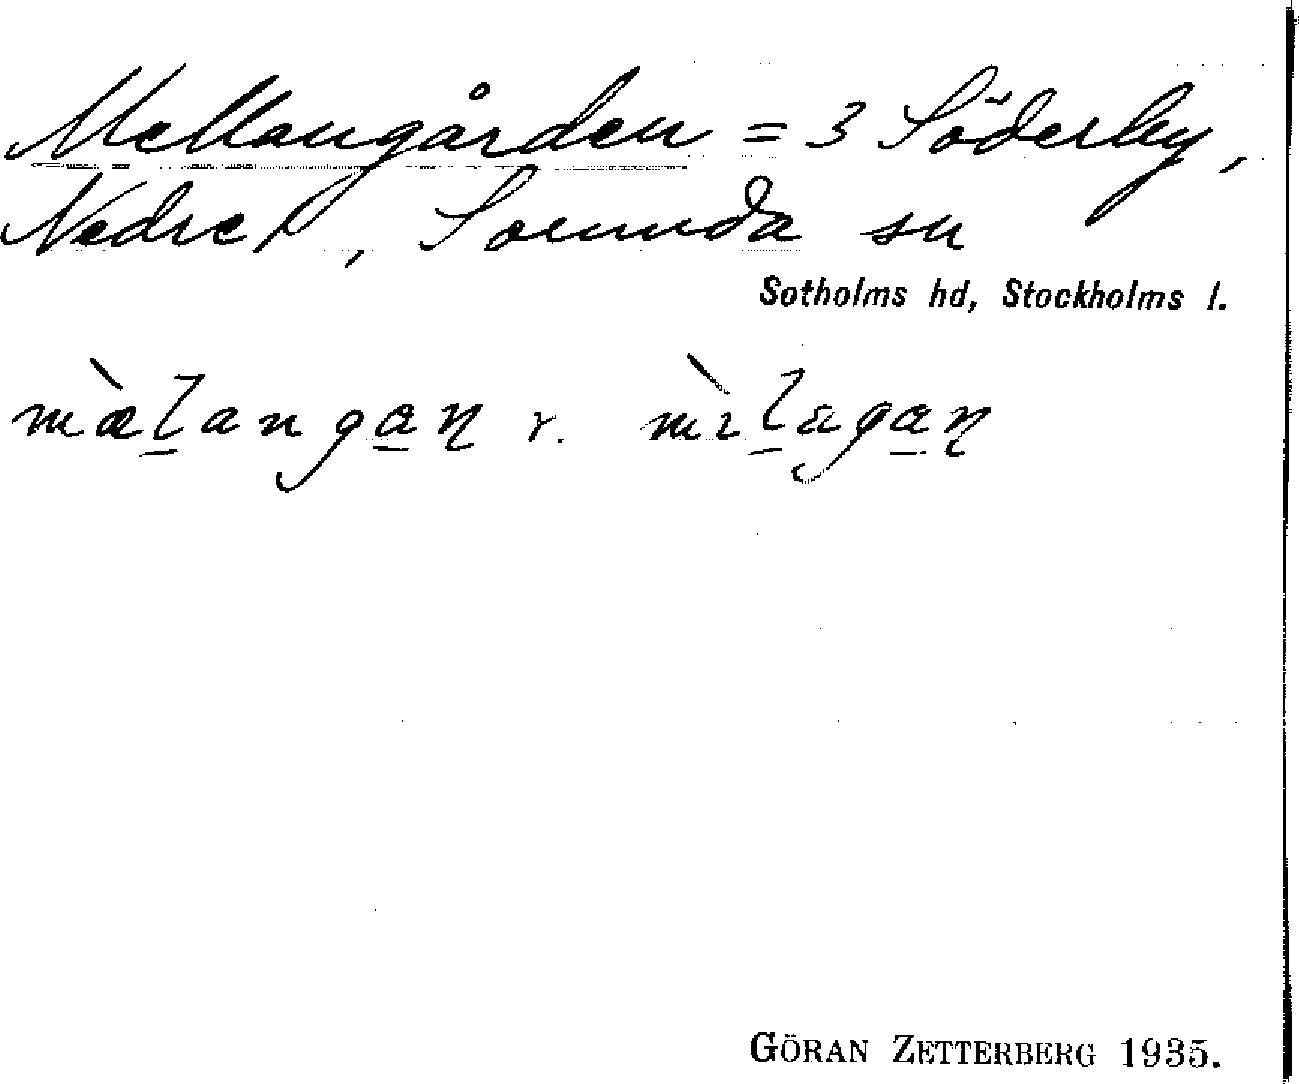 Mellangården = 3 Söderby,
Nedre, Sorunda sn
Sotholms hd, Stockholms l.
mæ̀l̲anga̲ɳ r.
GÖRAN ZETTERBERG 1935.